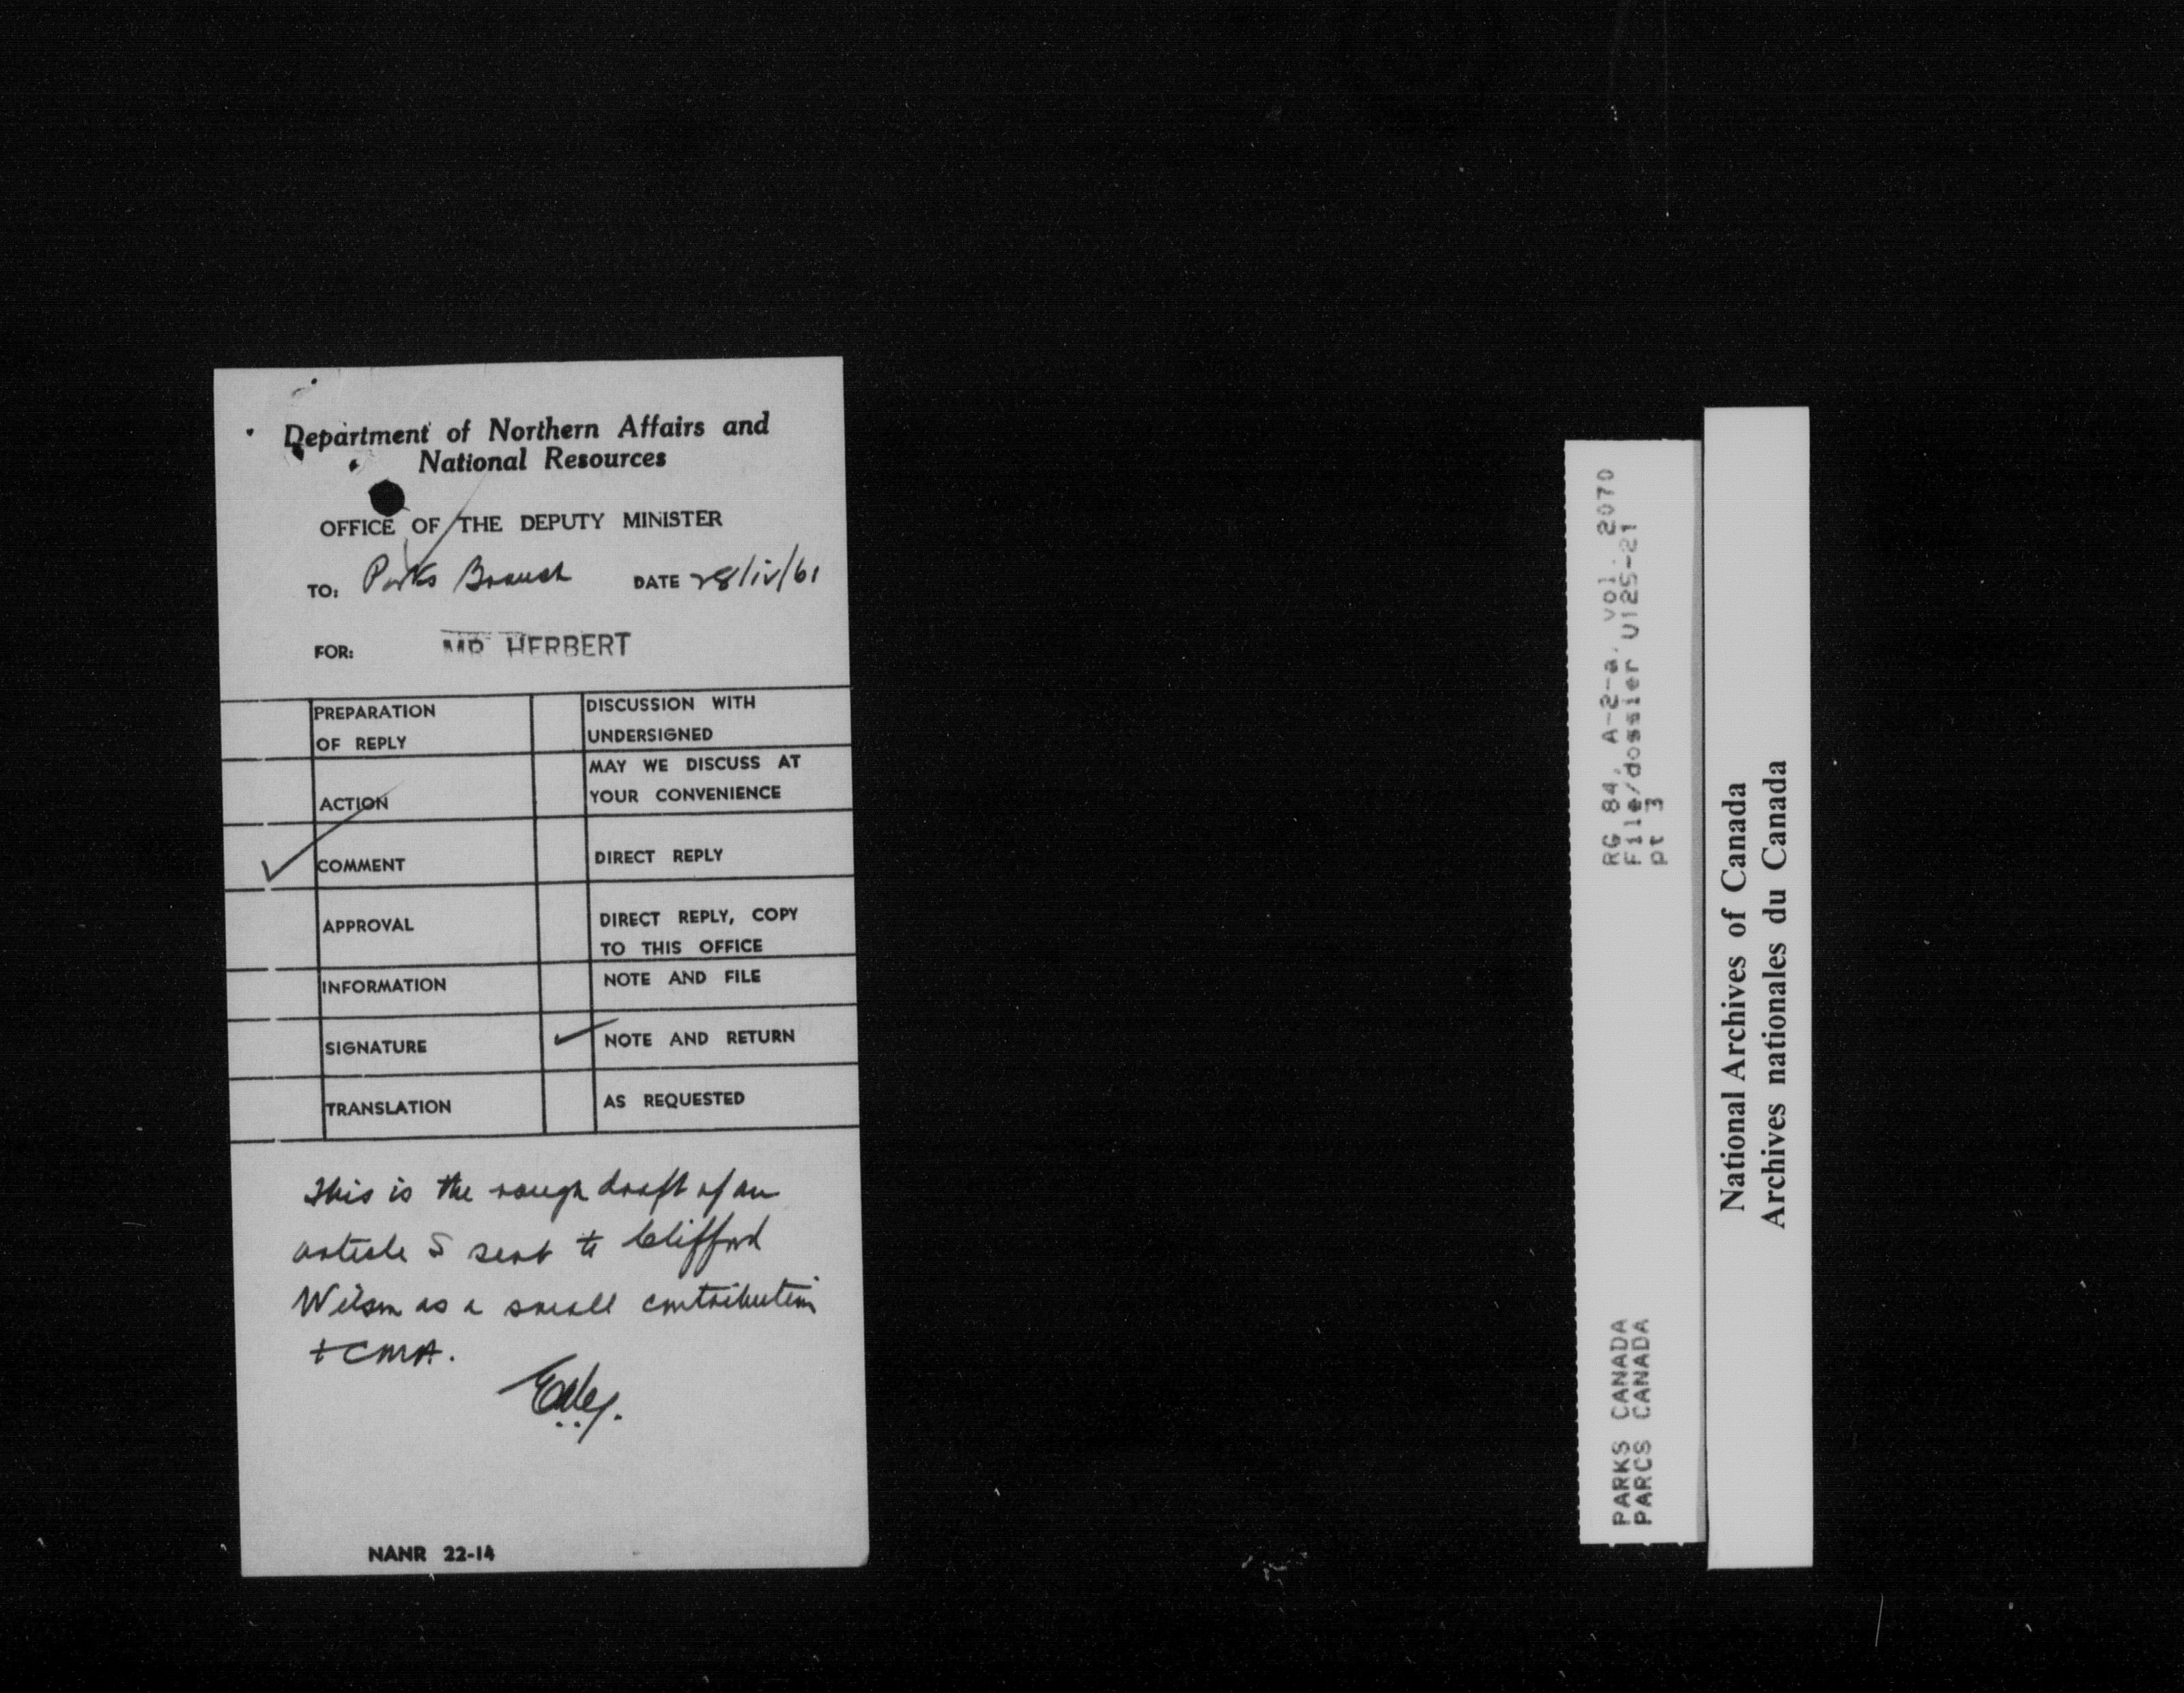 Department of Northern Affairs and
National Resources
OFFICE OF THE DEPUTY MINISTER
TO: Parks Branch DATE 28/iv/61
FOR: MR HERBERT
PREPARATION
OF REPLY
DISCUSSION WITH
UNDERSIGNED
ACTION
MAY WE DISCUSS AT
YOUR CONVENIENCE
✓ COMMENT
DIRECT REPLY
APPROVAL
DIRECT REPLY, COPY
TO THIS OFFICE
INFORMATION
NOTE AND FILE
SIGNATURE
✓ NOTE AND RETURN
TRANSLATION
AS REQUESTED
This is the rough draft of an
article I sent to Clifford
Wilson as a small contribution
to CMA.
NANR 22-14
RG 84, A-2-a, vol. 2070
File/dossier U125-21
pt 3
PARKS CANADA
PARCS CANADA
National Archives of Canada
Archives nationales du Canada